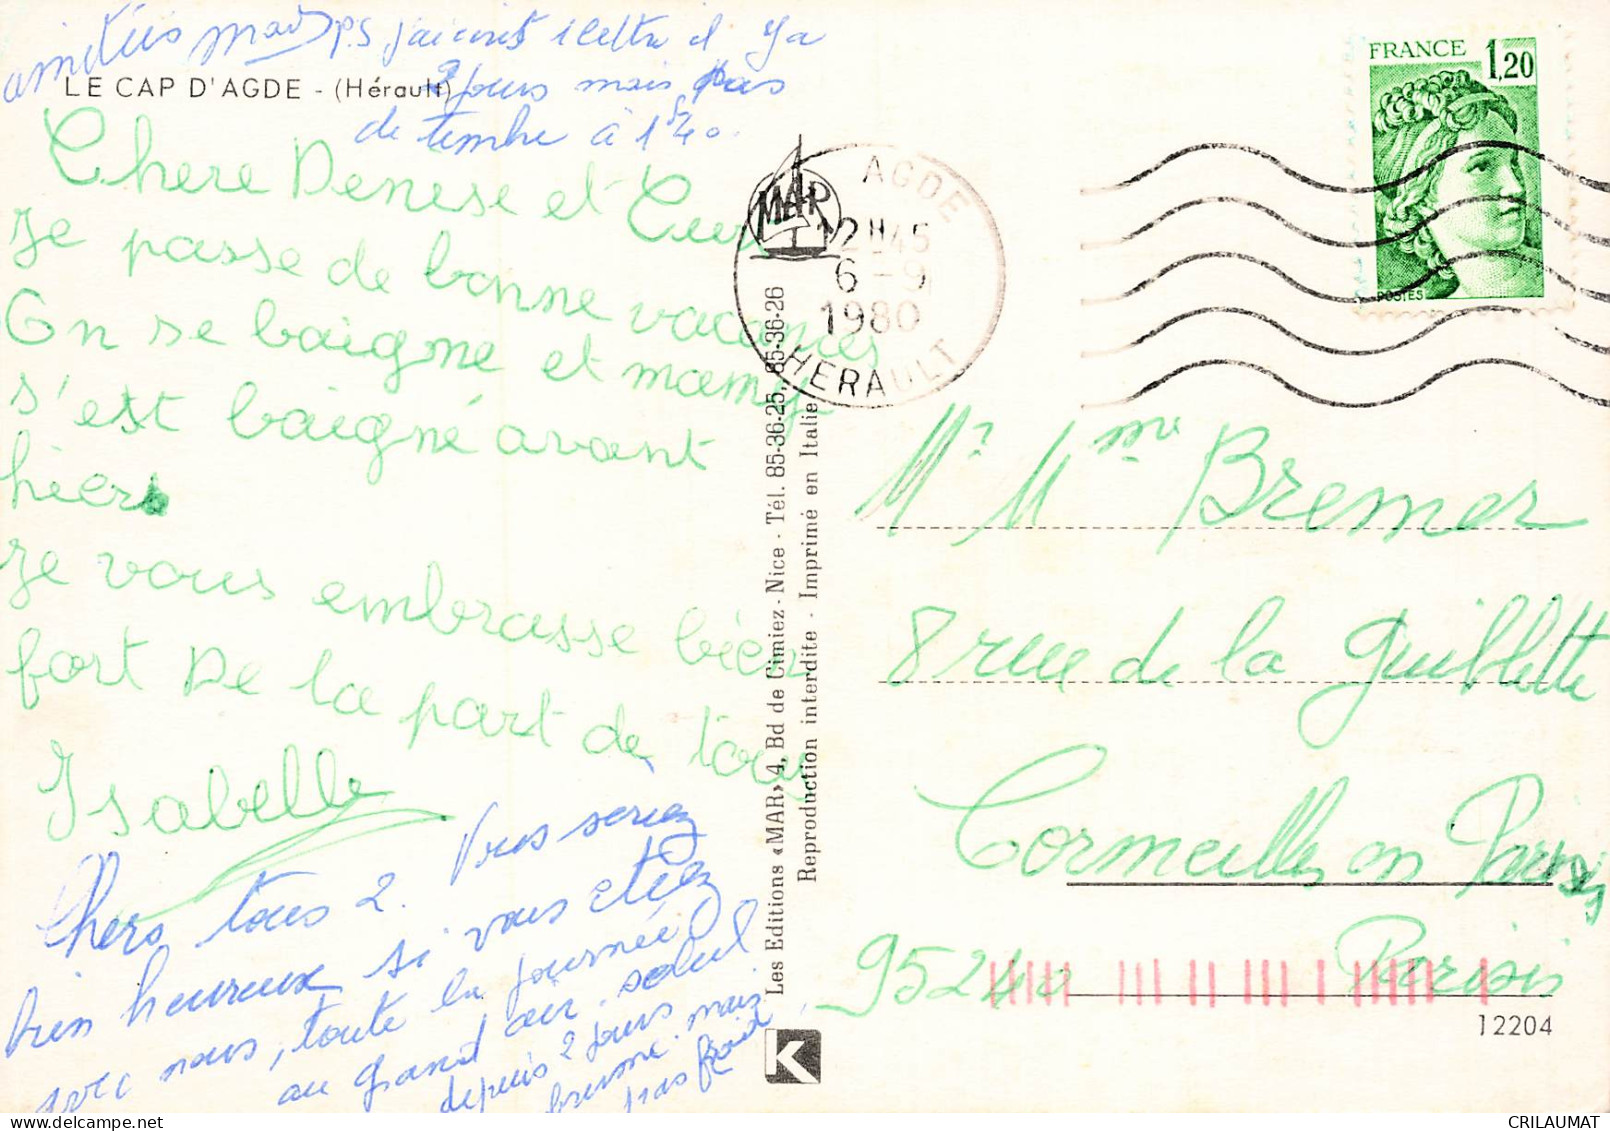 amitiés
ps j'ai écrit 1 lettre il y a
2 jours mais pas
de timbre à 1F40.
LE CAP D'AGDE - (Hérault)
Chere Denise et Luc
Je passe de bonne vacances
On se baigne et mamy
s'est baigné avant
hier
Je vous embrasse bien
fort De la part de tous
Isabelle
Chers tous 2. Vous seriez
bien heureux si vous etiez
avec nous, toute la journée
au grand air. soleil
depuis 2 jours mais
brume. mais
pas froid
Les Editions «MAR» 4, Bd de Cimiez - Nice - Tél. 85-36-25, 85-36-26
Reproduction interdite - Imprimé en Italie
MAR
AGDE
12H45
6-9
1980
HERAULT
FRANCE
1,20
POSTES
Mr Mme Bremer
8 rue de la Guiblette
Cormeilles en Parisis
95240 Parisis
12204
K
CRILAUMAT